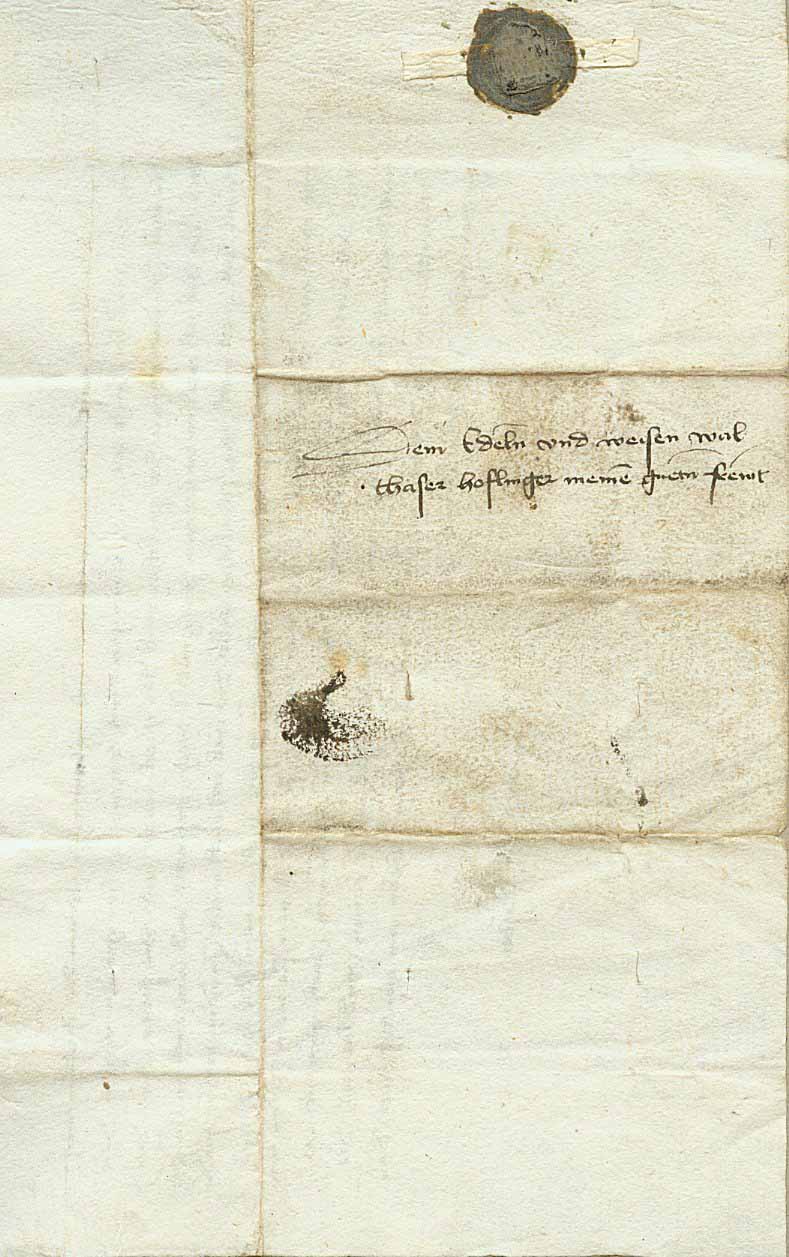 Dem Edeln vnd weisen wal
thaser hoflinger meinē guetn̄ freẅt